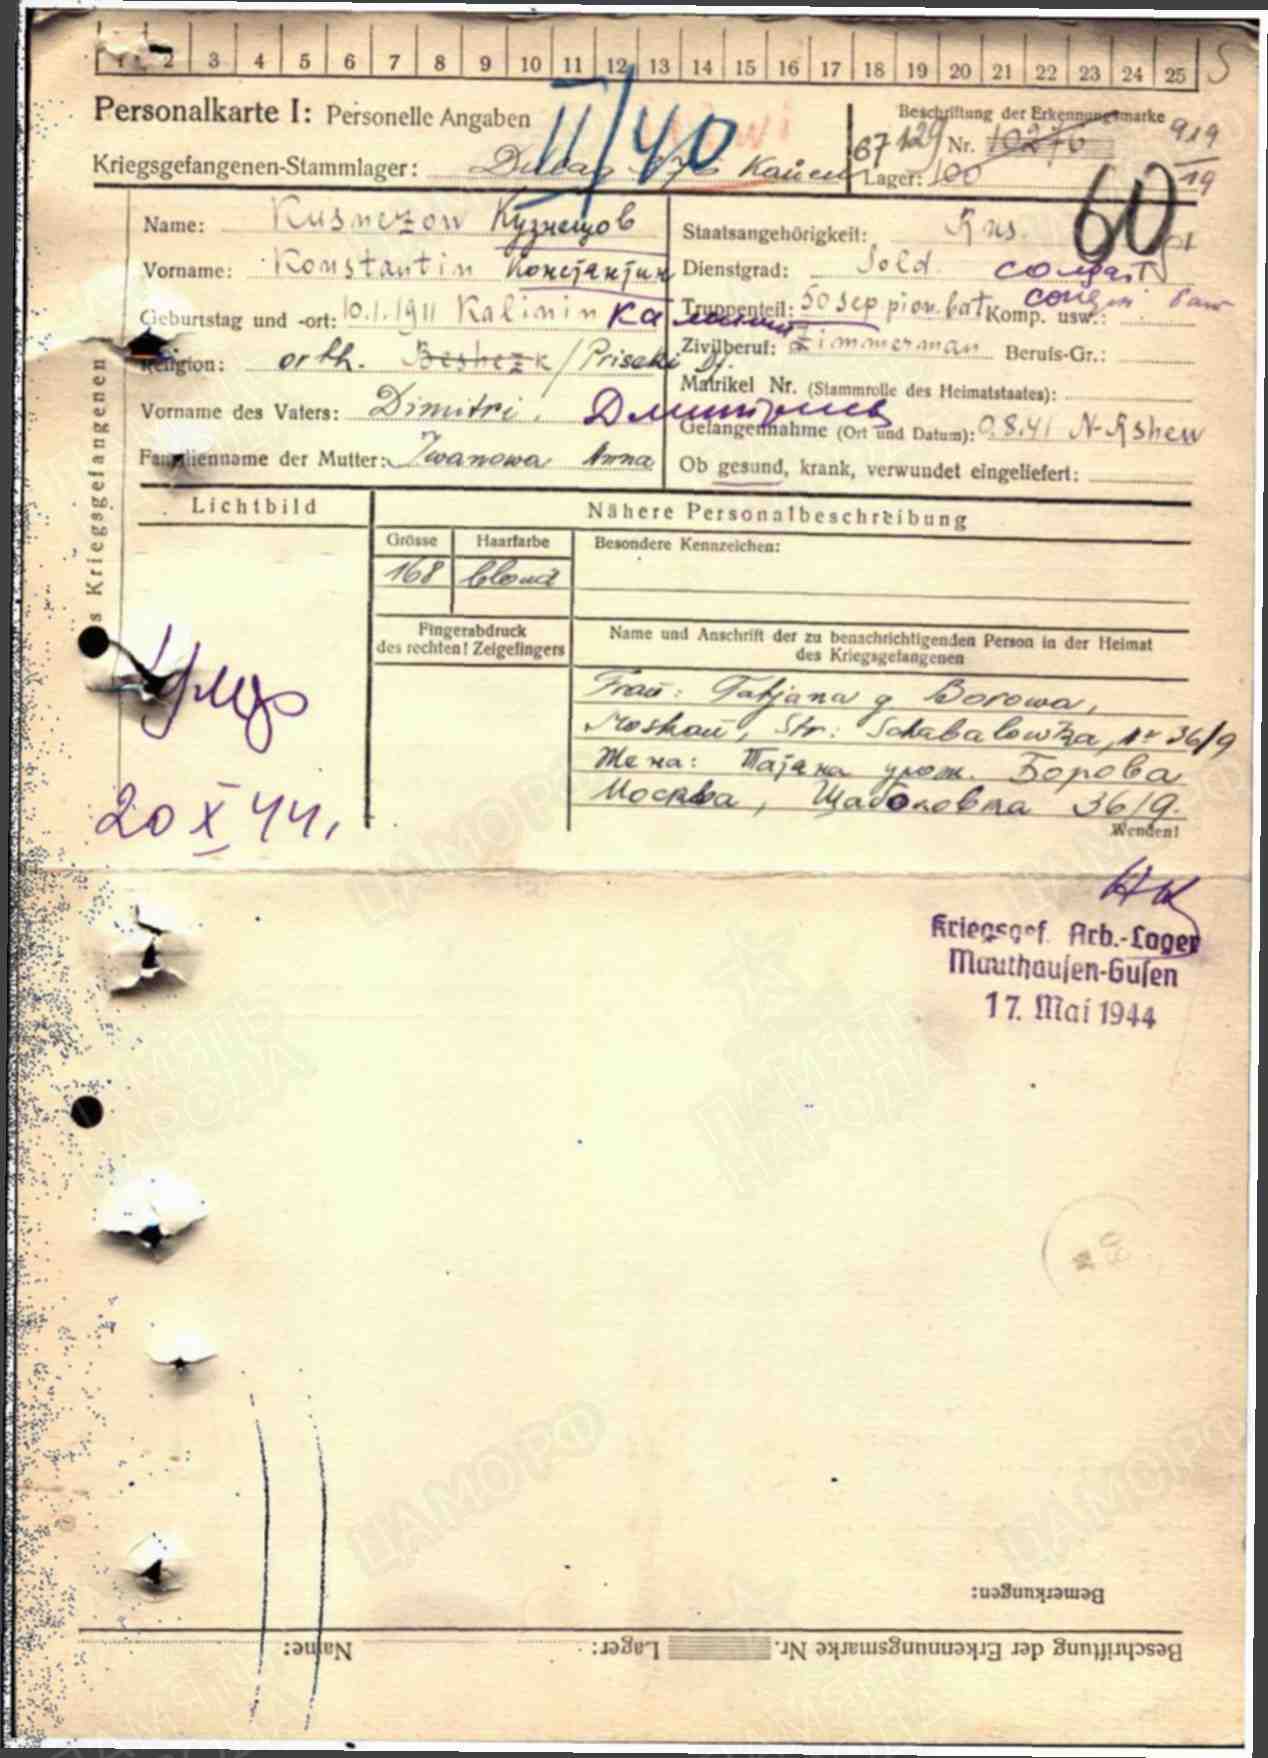 1 2 3 4 5 6 7 8 9 10 11 12 13 14 15 16 17 18 19 20 21 22 23 24 25
Personalkarte I: Personelle Angaben
II/40
Beschriftung der Erkennungsmarke
Kriegsgefangenen-Stammlager: Dulag
67129 Nr. 10276 919/19
Lager: 100
60
Name: Kusnezow Кузнецов
Staatsangehörigkeit: Rus.
Vorname: Konstantin Константин
Dienstgrad: Sold. солдат
Geburtstag und -ort: 10.1.1911 Kalinin
Truppenteil: 50 sep pion. bat Komp. usw.:
Religion: orth. Beshezk / Priseki
Zivilberuf: Zimmerman Berufs-Gr.:
Matrikel Nr. (Stammrolle des Heimatstaates):
Vorname des Vaters: Dimitri.
Gefangennahme (Ort und Datum): 0.8.41 N-Rshew
Familienname der Mutter: Iwanowa Anna
Ob gesund, krank, verwundet eingeliefert:
s Kriegsgefangenen
Lichtbild
Nähere Personalbeschreibung
Grösse Haarfarbe Besondere Kennzeichen:
168 blond
Fingerabdruck
des rechten! Zeigefingers
Name und Anschrift der zu benachrichtigenden Person in der Heimat
des Kriegsgefangenen
Frau: Tatjana g Borowa,
Moskau, Str: Schabalowka, Nr 36/9
Жена: Таjана урож. Борова
Москва, Щаболовка 36/9.
Wenden!
20 X 44.
Kriegsgef. Arb.-Lager
Mauthausen-Gusen
17. Mai 1944
Bemerkungen:
Beschriftung der Erkennungsmarke Nr. Lager: Name:
ЦАМО РФ
ПАМЯТЬ НАРОДА